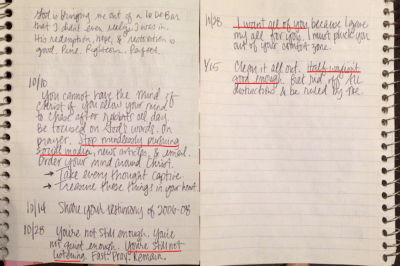 God is bringing me out of a Lo De Bar
that I didn't even really I was in.
His redemption, hope, & restoration is
good. Pure. Righteous. Perfect.
10/10
You cannot have the mind of
Christ if you allow your mind
to chase after rabbits all day.
Be focused on God's words. On
prayer. Stop mindlessly pursuing
social media, news articles, & email.
Order your mind around Christ.
→ Take every thought captive.
→ Treasure these things in your heart.
10/14 Share your testimony of 2006-08
10/28 You're not still enough. You're
not quiet enough. You're still not
listening. Fast. Pray. Remain.
10/28 I want all of you, because I gave
my all for you. I must pluck you
out of your comfort zone.
1/15 Clean it all out. Half wasn't
good enough. But put off the
distractions & be ruled by Me.